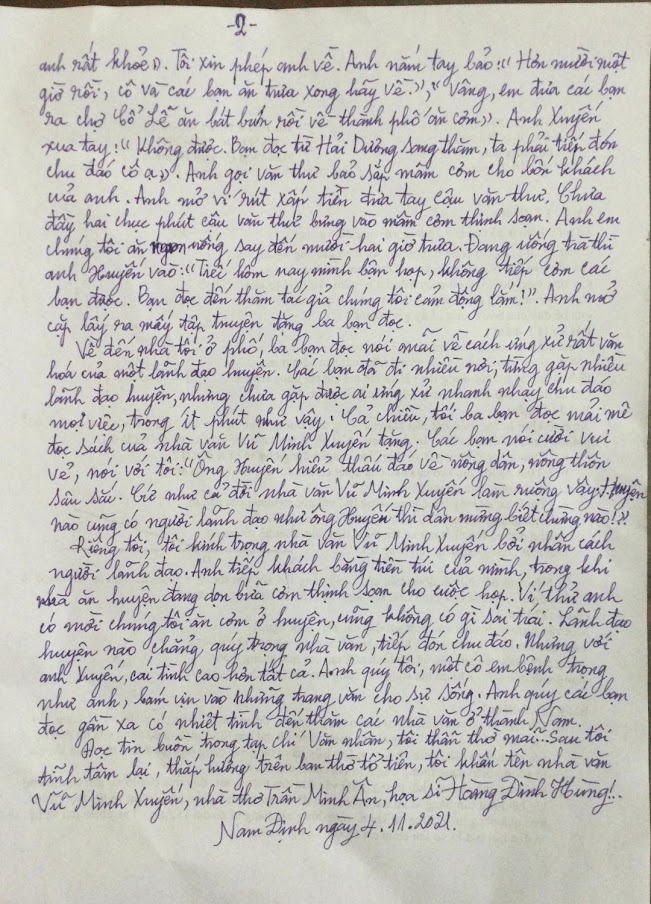 -2-
anh rất khỏe». Tôi xin phép anh về. Anh nắm tay bảo: "Hơn mười một
giờ rồi, cô và các bạn ăn trưa xong hãy về», "Vâng, em đưa các bạn
ra chợ Cổ Lễ ăn bát bún rồi về thành phố ăn cơm». Anh Xuyến
xua tay: "Không được. Bạn đọc từ Hải Dương sang thăm, ta phải tiếp đón
chu đáo cô ạ». Anh gọi văn thư bảo sắp mâm cơm cho bốn khách
của anh. Anh mở ví rút xấp tiền đưa tay cậu văn thư. Chưa
đầy hai chục phút cậu văn thư bưng vào mâm cơm thịnh soạn. Anh em
chúng tôi ăn ngon uống say đến mười hai giờ trưa. Đang uống trà thì
anh Xuyến vào: "Tiếc hôm nay mình bận họp, không tiếp cơm các
bạn được. Bạn đọc đến thăm tác giả chúng tôi cảm động lắm!". Anh mở
cặp lấy ra mấy tập truyện tặng ba bạn đọc.
Về đến nhà tôi ở phố, ba bạn đọc nói mãi về cách ứng xử rất văn
hoá của một lãnh đạo huyện. Các bạn đã đi nhiều nơi, từng gặp nhiều
lãnh đạo huyện, nhưng chưa gặp được ai ứng xử nhanh nhạy chu đáo
mọi việc, trong ít phút như vậy. Cả chiều, tôi ba bạn đọc mải mê
đọc sách của nhà văn Vũ Minh Xuyến tặng. Các bạn nói cười vui
vẻ, nói với tôi: "Ông Xuyến hiểu thấu đáo về nông dân, nông thôn
sâu sắc. Cứ như cả đời nhà văn Vũ Minh Xuyến làm ruộng vậy. Huyện
nào cũng có người lãnh đạo như ông Xuyến thì dân mừng biết chừng nào!?.
Riêng tôi, tôi kính trọng nhà văn Vũ Minh Xuyến bởi nhân cách
người lãnh đạo. Anh tiếp khách bằng tiền túi của mình, trong khi
nhà ăn huyện đang dọn bữa cơm thịnh soạn cho cuộc họp. Ví thử anh
có mời chúng tôi ăn cơm ở huyện, cũng không có gì sai trái. Lãnh đạo
huyện nào chẳng quý trọng nhà văn, tiếp đón chu đáo. Nhưng với
anh Xuyến, cái tình cao hơn tất cả. Anh quý tôi, một cô em bệnh trọng
như anh, bám víu vào những trang văn cho sự sống. Anh quý các bạn
đọc gần xa có nhiệt tình đến thăm các nhà văn ở thành Nam.
Đọc tin buồn trong tạp chí Văn nhân, tôi thẫn thờ mãi... Sau tôi
tĩnh tâm lại, thắp hương trên ban thờ tổ tiên, tôi khấn tên nhà văn
Vũ Minh Xuyến, nhà thơ Trần Minh Ân, họa sĩ Hoàng Đình Hùng!..
Nam Định ngày 4.11.2021.